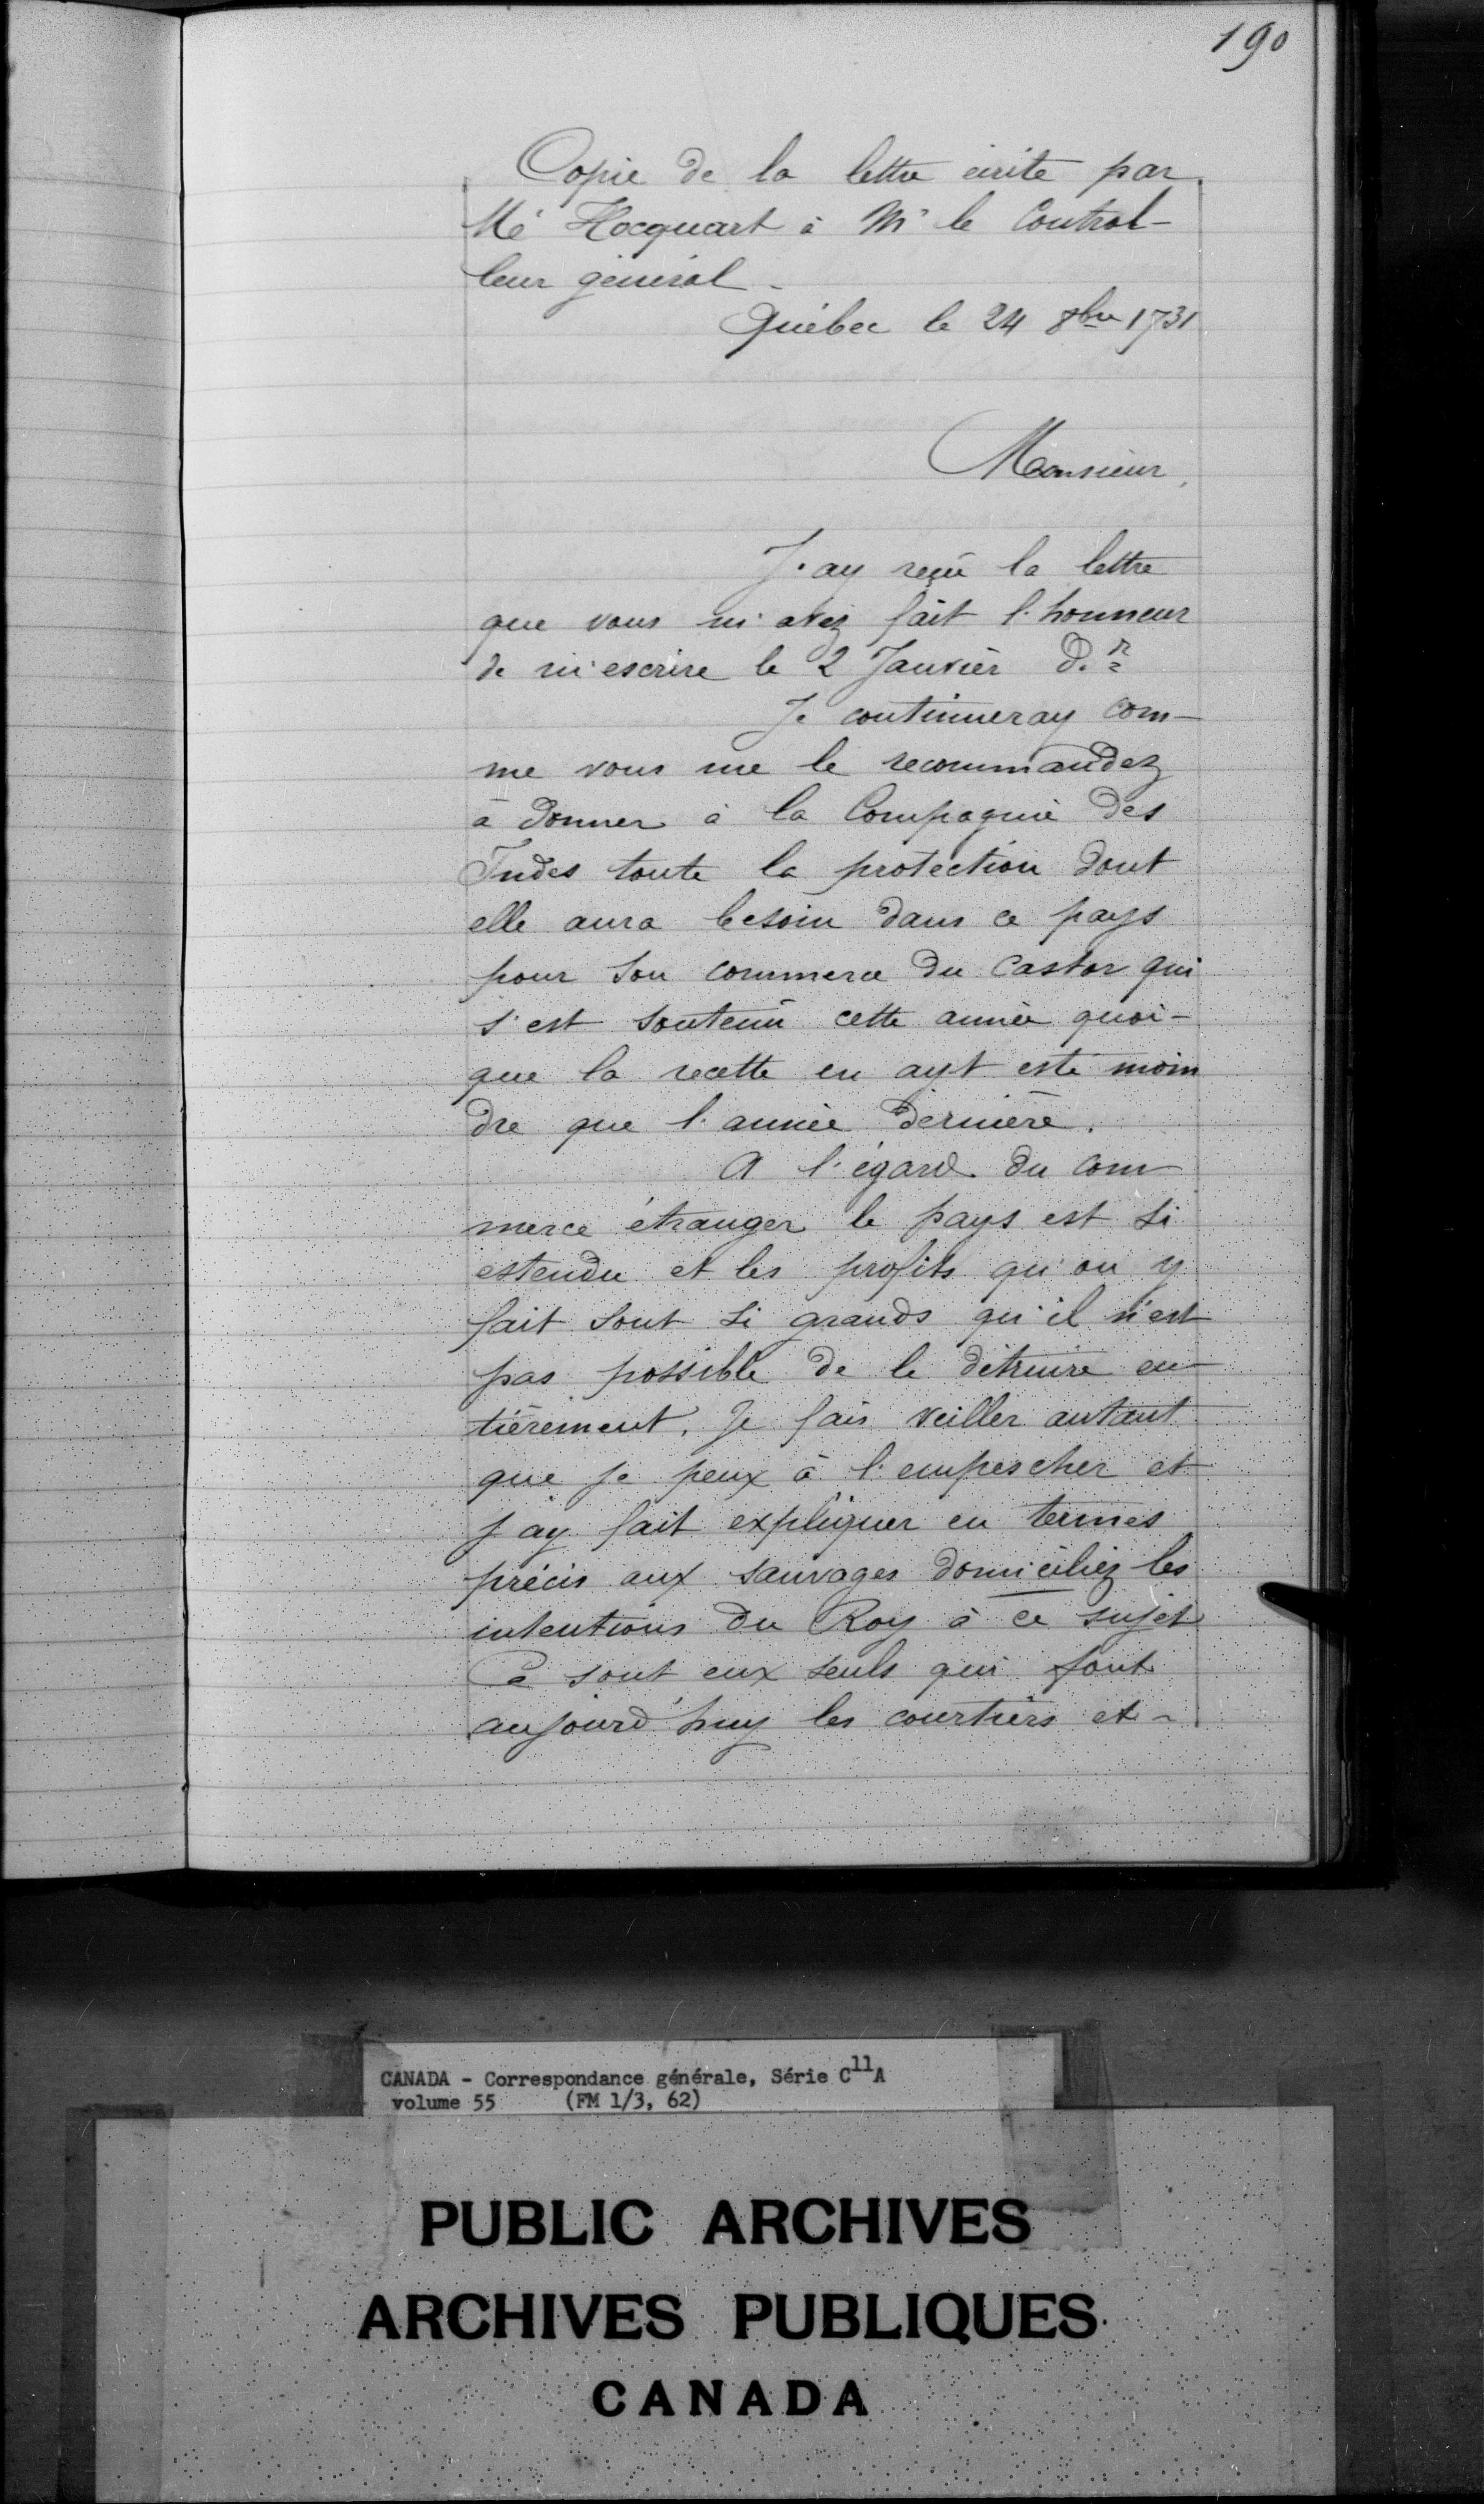 190
Copie de la lettre écrite par
Mr Hocquart à Mr le Control-
leur général -
Québec le 24 8bre 1731
Monsieur,
J'ay reçû la lettre
que vous m'avez fait l'honneur
de m'escrire le 2 Janvier d.r
Je continueray com-
me vous me le recommandez
à donner à la Compagnie des
Indes toute la protection dont
elle aura besoin dans ce pays
pour son commerce du Castor qui
s'est soutenû cette année quoi-
que la recette en ayt esté moin
dre que l'année dernière.
A l'égard du com
merce étranger le pays est si
estendu et les profits qu'on y
fait sont si grands qu'il n'est
pas possible de le détruire en-
tièrement. Je fais veiller autant
que je peux à l'empescher et
j'ay fait expliquer en termes
précis aux sauvages domiciliez les
intentions du Roy à ce sujet
Ce sont eux seuls qui font
aujourd'huy les courtiers et -
CANADA - Correspondance générale, Série C11A
volume 55 (FM 1/3, 62)
PUBLIC ARCHIVES
ARCHIVES PUBLIQUES
CANADA